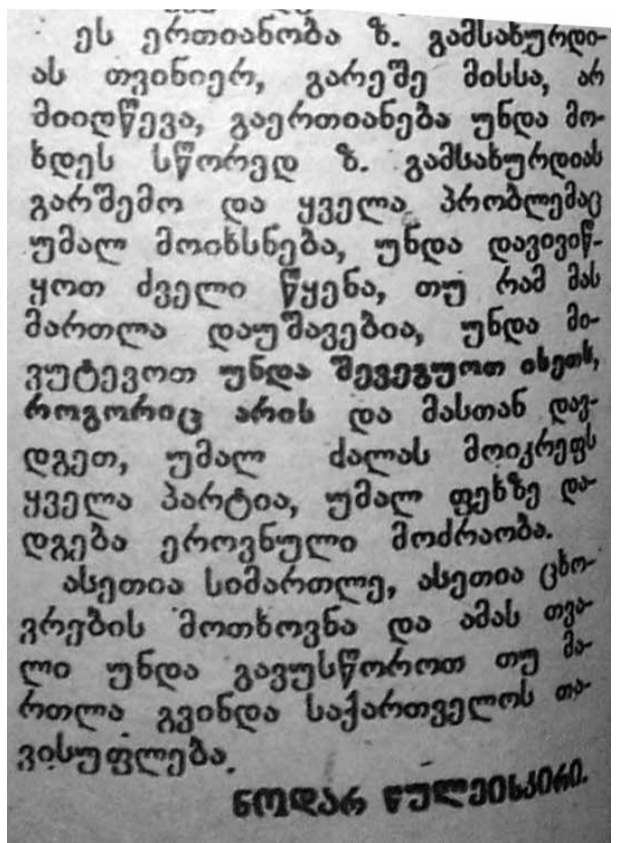 ეს ერთიანობა ზ. გამსახურდი-
ას თვინიერ, გარეშე მისსა, არ
მიიღწევა, გაერთიანება უნდა მო-
ხდეს სწორედ ზ. გამსახურდიას
გარშემო და ყველა პრობლემაც
უმალ მოიხსნება, უნდა დავივიწ-
ყოთ ძველი წყენა, თუ რამ მას
მართლა დაუშავებია, უნდა მი-
ვუტევოთ უნდა შევეგუოთ ისეთს,
როგორიც არის და მასთან დავ-
დგეთ, უმალ ძალას მოიკრეფს
ყველა პარტია, უმალ ფეხზე და-
დგება ეროვნული მოძრაობა.
ასეთია სიმართლე, ასეთია ცხო-
ვრების მოთხოვნა და ამას თვა-
ლი უნდა გავუსწოროთ თუ მა-
რთლა გვინდა საქართველოს თა-
ვისუფლება.
ნოდარ წულეისკირი.